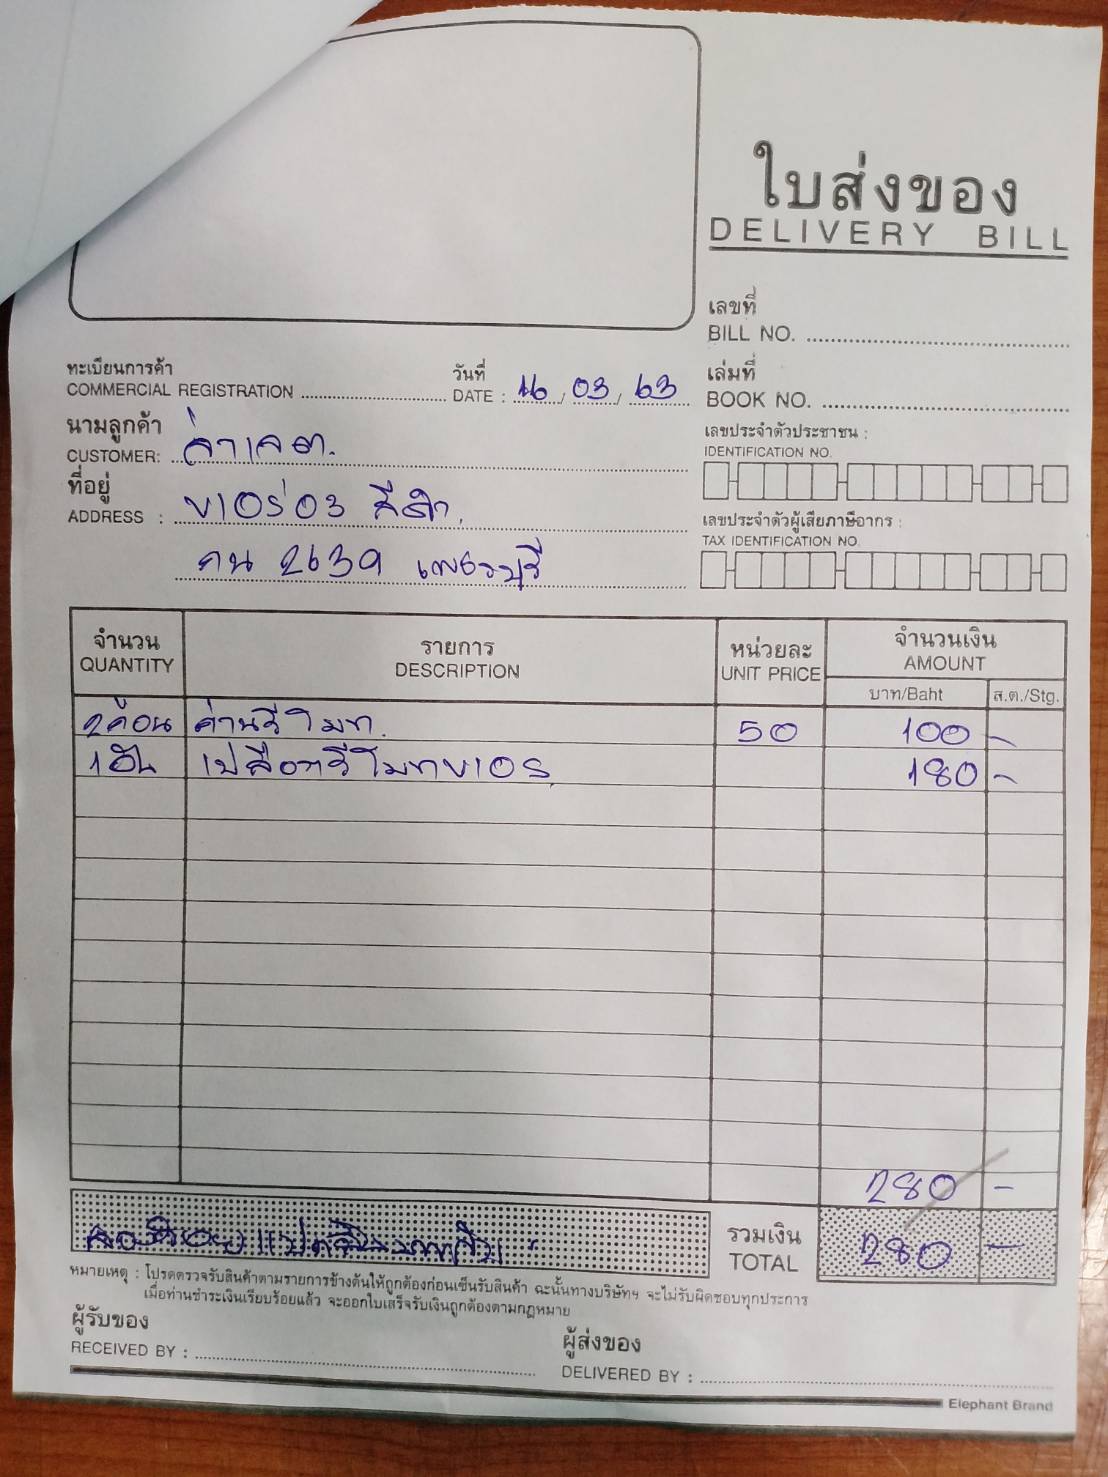 ใบส่งของ
DELIVERY BILL
เลขที่
BILL NO.
ทะเบียนการค้า
COMMERCIAL REGISTRATION
วันที่
DATE : 16 / 03 / 63
เล่มที่
BOOK NO.
นามลูกค้า
CUSTOMER:
เลขประจำตัวประชาชน :
IDENTIFICATION NO.
ที่อยู่
ADDRESS : 03
เลขประจำตัวผู้เสียภาษีอากร :
TAX IDENTIFICATION NO.
2639 เพชรบุรี
จำนวน รายการ หน่วยละ จำนวนเงิน
QUANTITY DESCRIPTION UNIT PRICE AMOUNT
บาท/Baht ส.ต./Stg.
2 ก้อน ถ่านรีโมท 50 100 -
1 อัน เปลือกรีโมท 180 -
280 -
รวมเงิน
TOTAL 280 -
หมายเหตุ : โปรดตรวจรับสินค้าตามรายการข้างต้นให้ถูกต้องก่อนเซ็นรับสินค้า ฉะนั้นทางบริษัทฯ จะไม่รับผิดชอบทุกประการ
เมื่อท่านชำระเงินเรียบร้อยแล้ว จะออกใบเสร็จรับเงินถูกต้องตามกฎหมาย
ผู้รับของ
RECEIVED BY :
ผู้ส่งของ
DELIVERED BY :
Elephant Brand